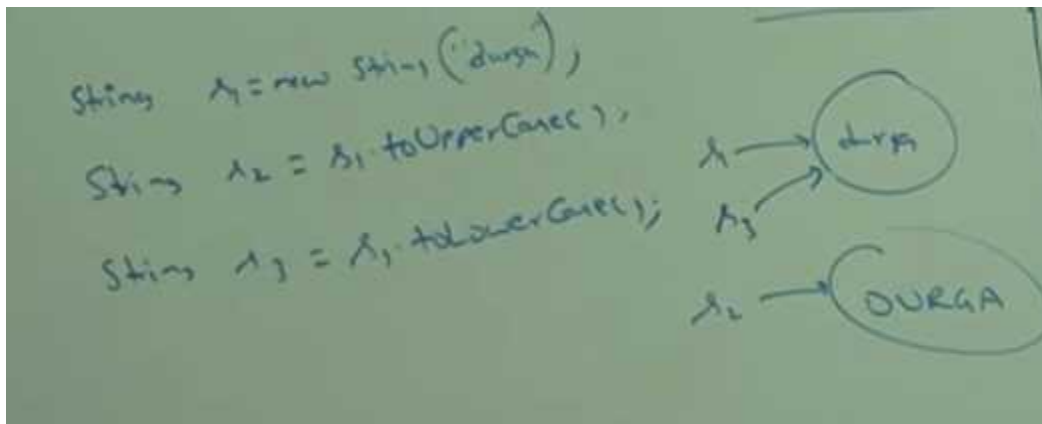 String s1 = new String("durga");
String s2 = s1.toUpperCase();
String s3 = s1.toLowerCase();
s1 durga
s3
s2 DURGA